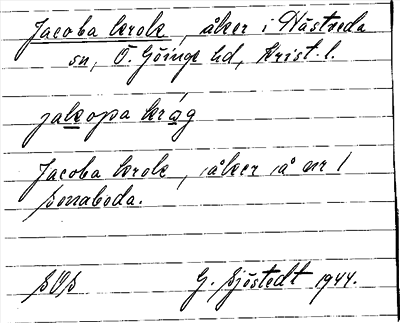 Jacoba krok, åker i Hästveda
sn, Ö. Göinge hd, Krist. l.
jakopa kråg
Jacoba krok, åker å nr 1
Sonaboda.
SOS G. Sjöstedt 1944.